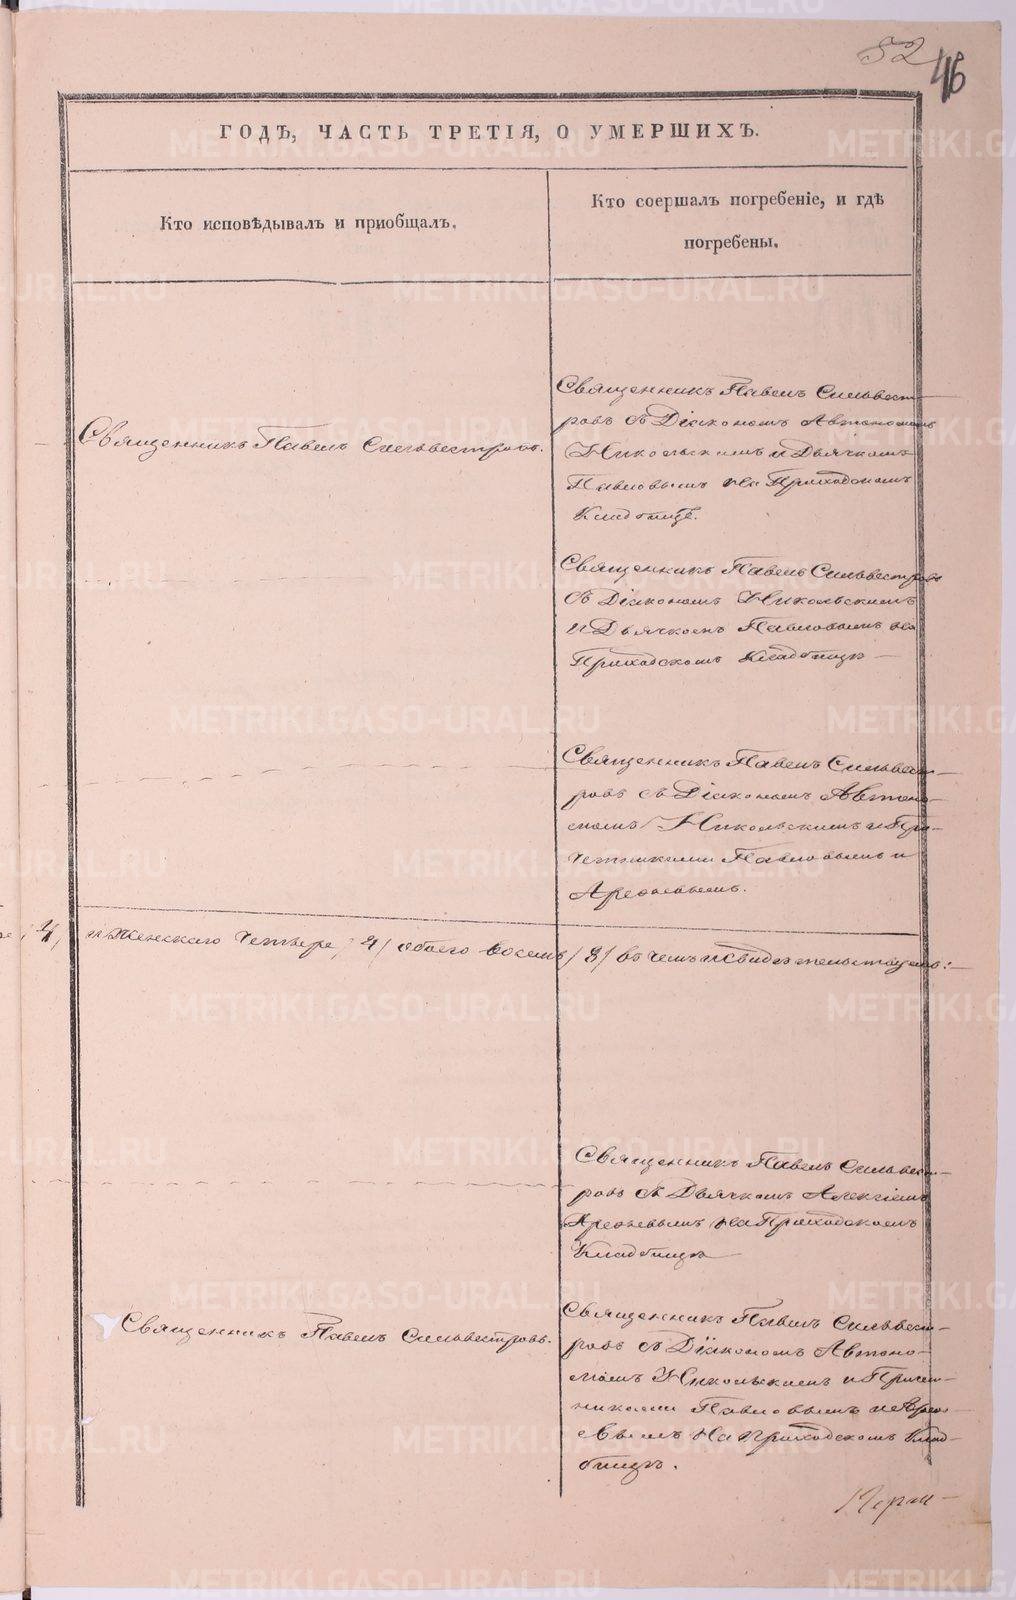 52 46
ГОДѢ, ЧАСТЬ ТРЕТІЯ, О УМЕРШИХЪ.
Кто исповѣдывалъ и приобщалъ.
Кто соершалъ погребеніе, и гдѣ
погребены.
Священникъ Павелъ Сильвестровъ.
Священникъ Павелъ Сильвест-
ровъ съ Діакономъ Автономомъ
Никольскимъ и Дьячкомъ
Павловымъ на Приходскомъ
Кладбищѣ.
Священникъ Павелъ Сильвестровъ
съ Діакономъ Никольскимъ
и Дьячкомъ Павловымъ на
Приходскомъ Кладбищѣ
Священникъ Павелъ Сильвест-
ровъ съ Діакономъ Автоно-
момъ Никольскимъ и При-
четниками Павловымъ и
Арефьевымъ.
4, и Женскаго Четыре, /4/ обоего восемь /8/ въ чемъ и свидѣтельствуемъ:
Священникъ Павелъ Сильвест-
ровъ съ Дьячкомъ Алексіемъ
Арефьевымъ на Приходскомъ
Кладбищѣ
Священникъ Павелъ Сильвестровъ.
Священникъ Павелъ Сильвест-
ровъ съ Діакономъ Автоно-
момъ Никольскимъ и Причет-
никами Павловымъ и Арефь-
евымъ на приходскомъ Клад-
бищѣ.
METRIKI.GASO-URAL.RU